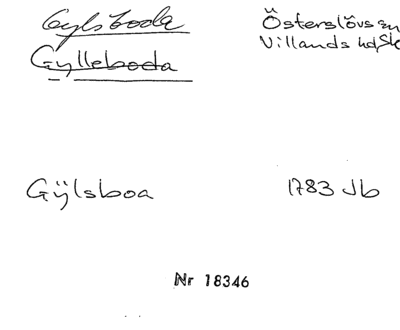 Gylsboda
Österslövs sn
Gylleboda
Villands hd Sk
Gÿlsboa
1783 Jb
Nr 18346